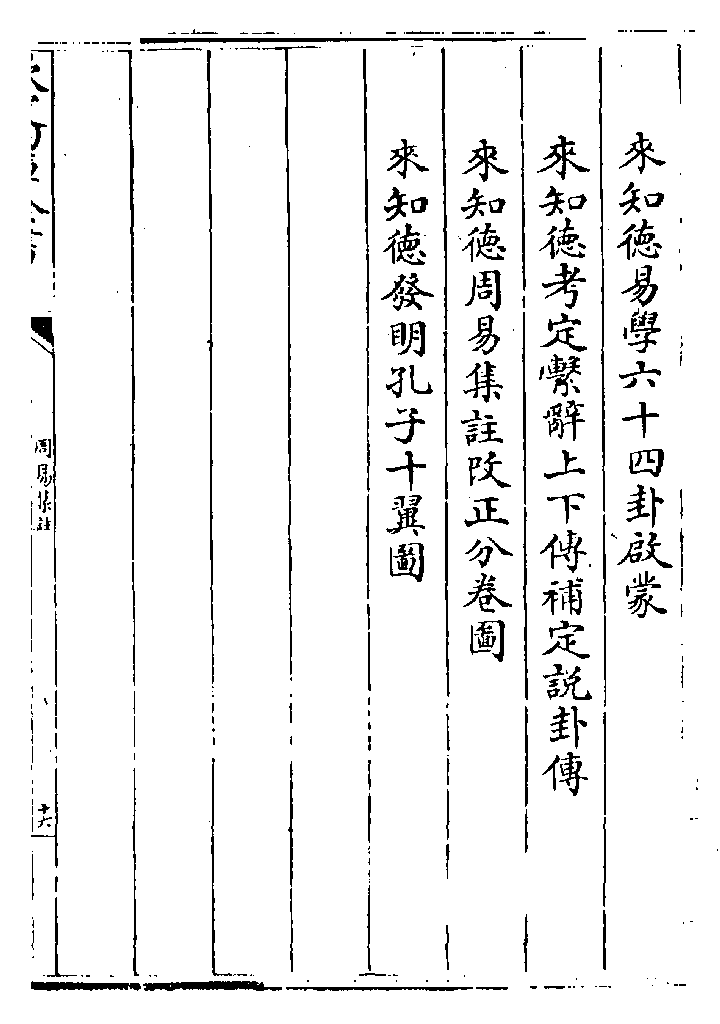 來知德易學六十四卦啟蒙
來知德考定繫辭上下傳補定說卦傳
來知德周易集註改正分卷圖
來知德發明孔子十翼圖
周易集註
十六